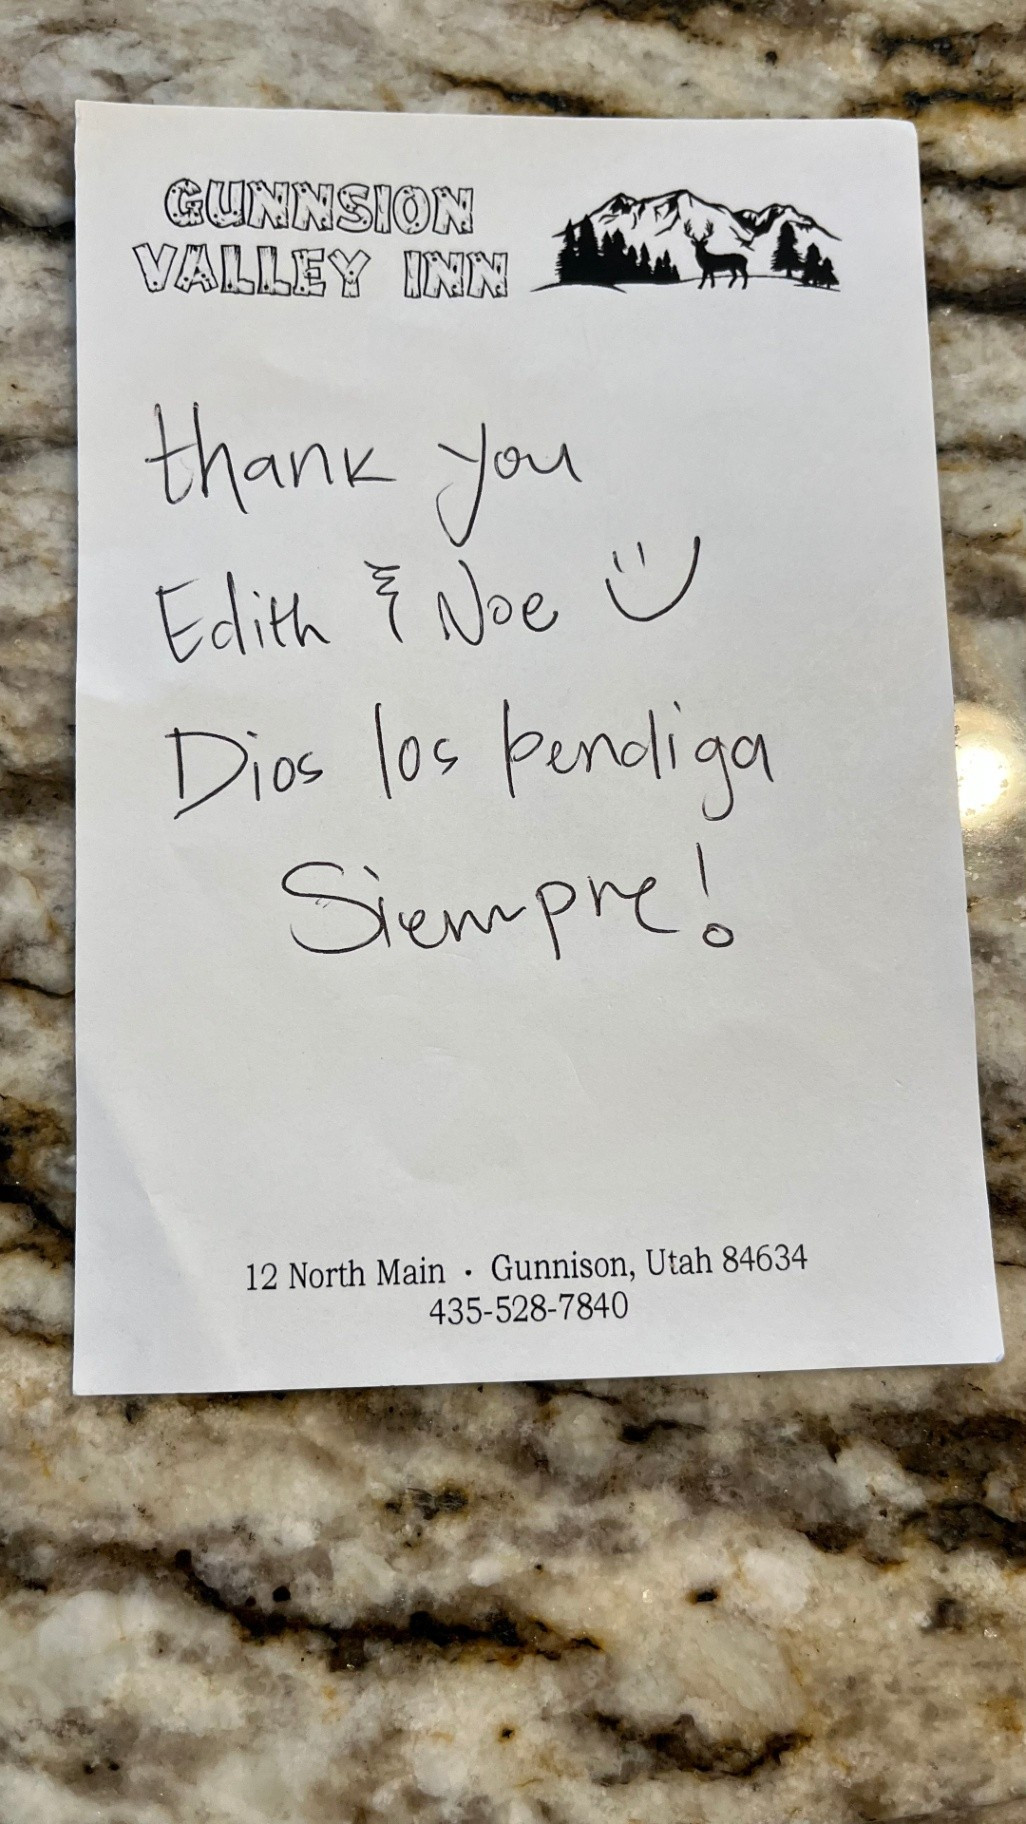 GUNNSION
VALLEY INN
thank you
Edith & Noe :)
Dios los bendiga
Siempre!
12 North Main • Gunnison, Utah 84634
435-528-7840